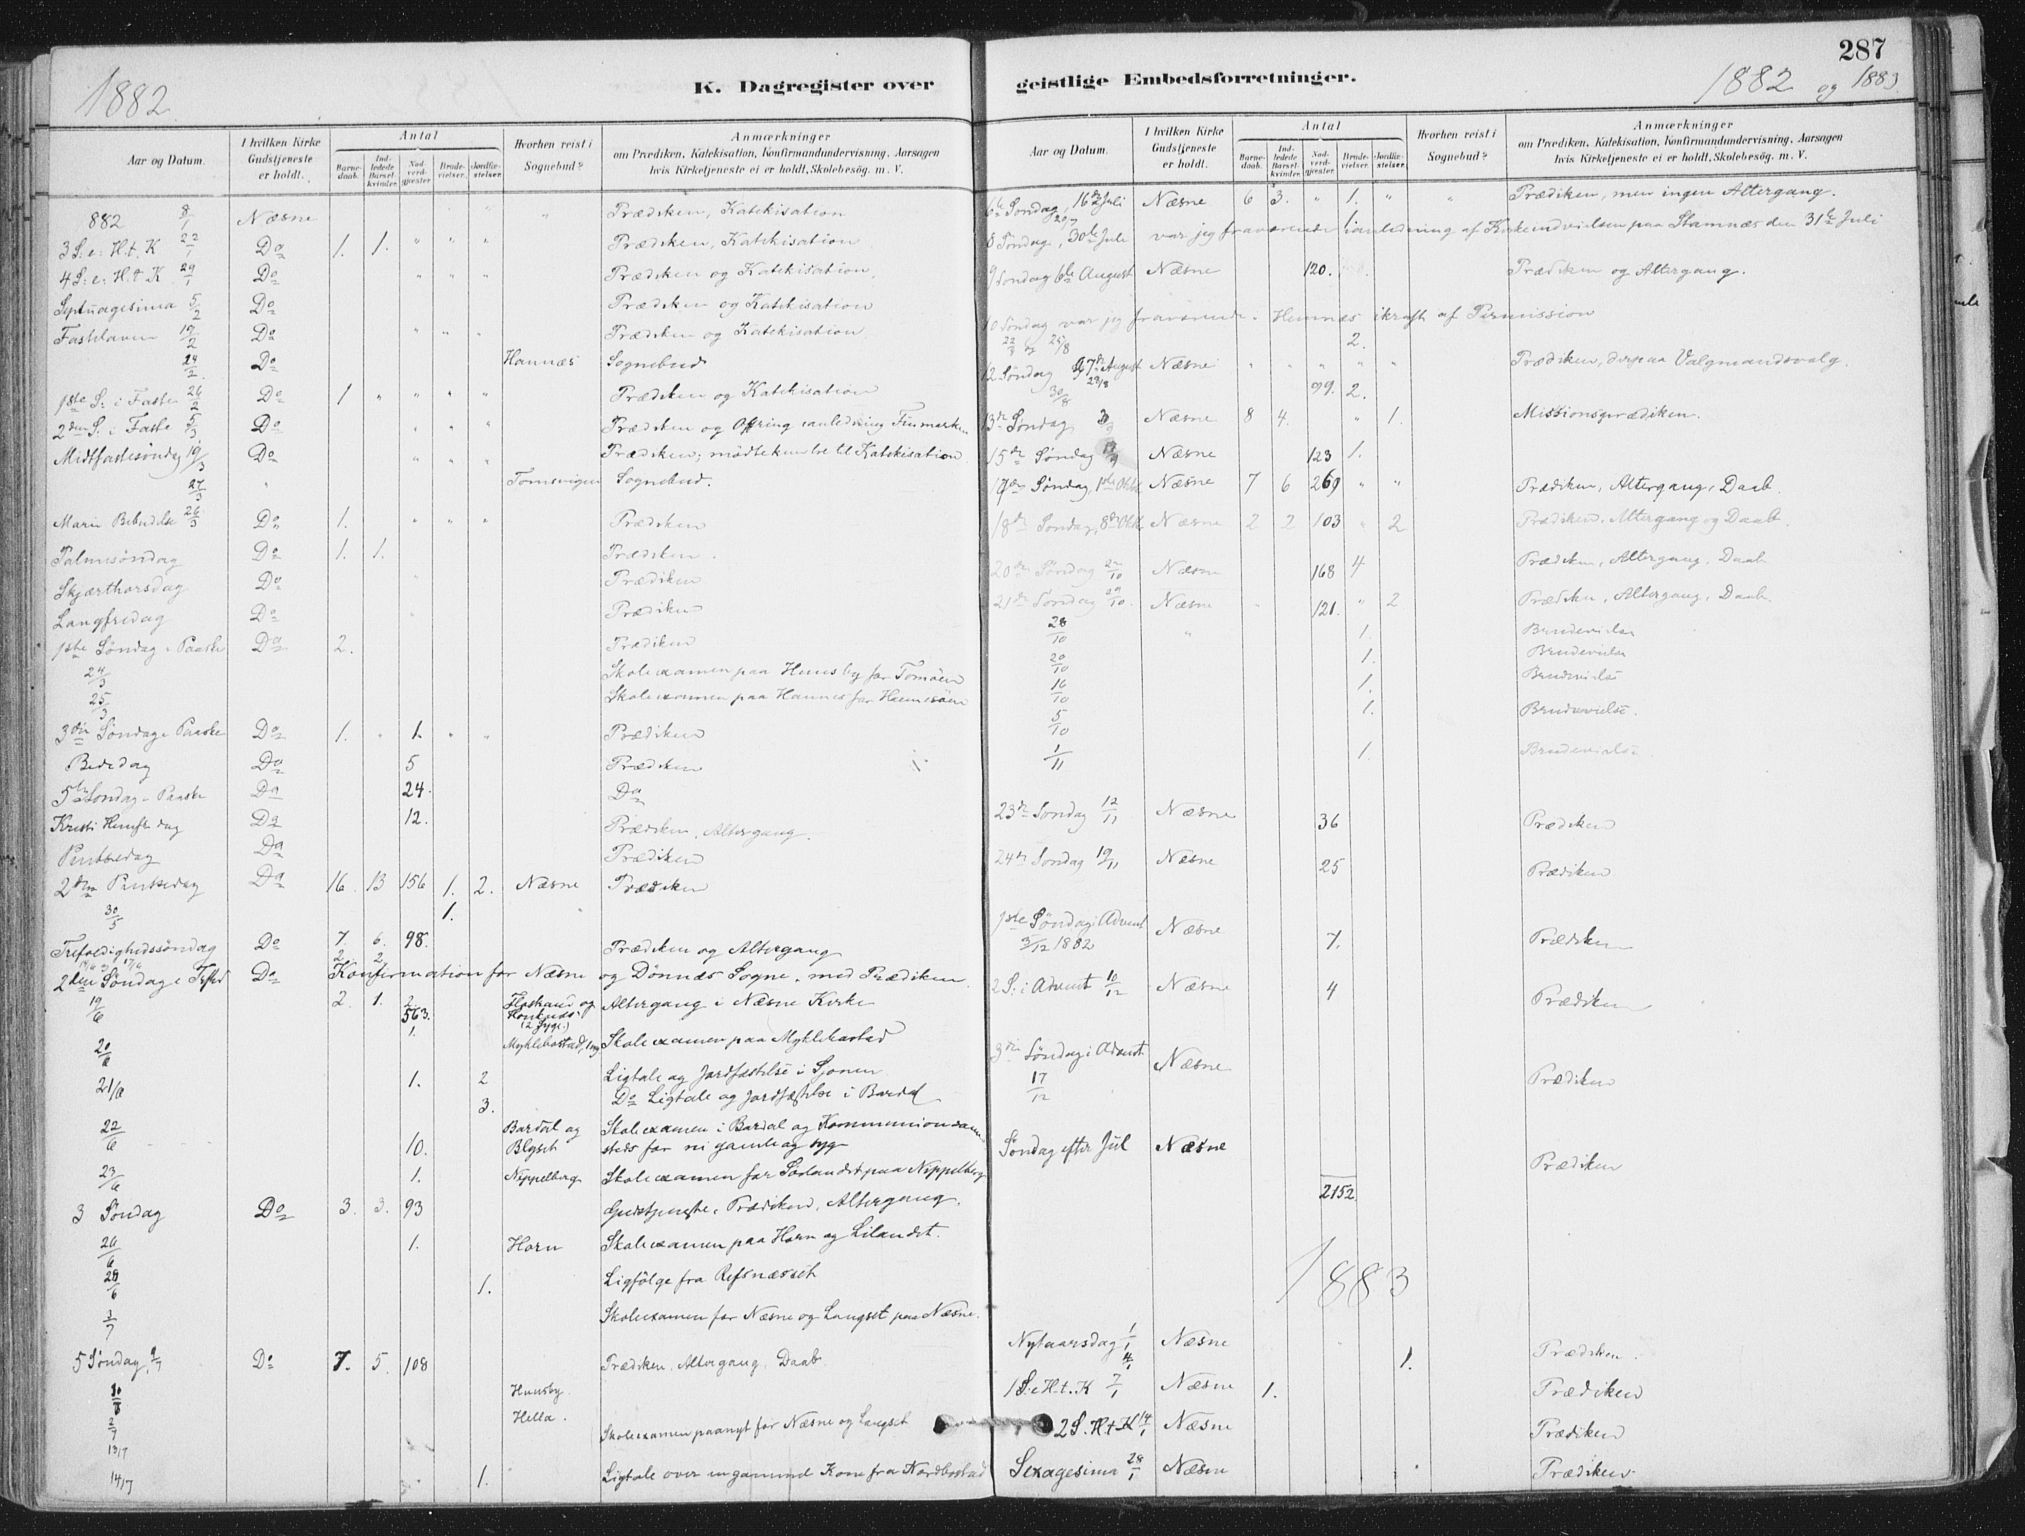 287
1882
K. Dagregister over geistlige Embedsforretninger.
1882 og 1883
Aar og Datum.
I hvilken Kirke Gudstjeneste er holdt.
Antal
Barnedaab.
Indledede Barselkvinder.
Nadverdgjester.
Brudevielser.
Jordfæstelser.
Hvorhen reist i Sognebud?
Anmærkninger
om Prædiken, Katekisation, Konfirmandundervisning, Aarsagen
hvis Kirketjeneste ei er holdt, Skolebesög. m. V.
882 8/1 Næsne " Prædiken, Katekisation
3 S: e: H. t. K 22/1 Do 1. 1. " " " Prædiken, Katekisation
4 S: e: H. t. K. 29/1 Do " " " Prædiken og Katekisation
Septuagesima 5/2 Do Prædiken og Katekisation
Fastelavn 19/2 Do " " " Prædiken og Katekisation
24/2 Do Hannæs Sognebud
1ste S. i Faste 26/2 Do 1 " " " " Prædiken og Katekisation
2den S. i Faste 5/3 Do " " " Prædiken og Offring i anledning Finmarken
Midtfastesöndag 19/3 Do " " " Prædiken; mödte kun tre til Katekisation
27/3 " Tomsvigen Sognebud.
Mariæ Bebudelse 26/3 Do 1. " " " Prædiken
Palmesöndag Do 1. 1. Prædiken.
Skjærthorsdag Do Prædiken
Langfredag Do Prædiken
1ste Söndag i Paaske Do 2. Prædiken
24/3 Skoleexamen paa Husby for Tomöen
25/3 Skoleexamen paa Hannes for
3die Söndag e Paaske Do 1. " 1. " " Prædiken
Bededag Do 5 Prædiken
5te Söndag e Paaske Do 24. Do
Kristi Himfts dag Do 12. Prædiken, Altergang.
Pintsedag Do Prædiken
2den Pintsedag Do 16. 13 156 1. 2. Næsne Prædiken
30/5 1.
Trefoldighedssöndag Do 7. 6. 98. Prædiken og Altergang
2 2
2den Söndag e Trefld Do Konfirmation for Næsne og Dönnæs Sogne, med Prædiken
19/6 2. 1. 2/563. og (2 Syge.) Altergang i Næsne Kirke
20/6 1. Myklebostad, 1 syg Skoleexamen paa Myklebostad
21/6 1. 2 Ligtale og Jordfæstelse i Sjonen
3. Do Ligtale og Jordfæstelse i Bardal
22/6 10. Bardal og Blyset Skoleexamen i Bardal og Kommunion samsteds for ni gamle og syge
23/6 1. Neppelberg Skoleexamen for Sörlandet paa Neppelberg
3 Söndag Do 3. 3. 93 Gudstjeneste, Prædiken, Altergang.
26/6 1. Horn Skoleexamen paa Horn og Lilandet.
28/6 1. Ligfölge fra Refsnæsset
3/7 Skoleexamen for Næsne og Langset paa Næsne.
5 Söndag, 9/7 Do 7. 5. 108 Prædiken, Altergang, Daab
Husby.
Hella.
Skoleexamen paanyt for Næsne og Langset
13/7
14/7 1. Ligtale over en gammel Kone fra Nordbostad
Aar og Datum.
I hvilken Kirke Gudstjeneste er holdt.
Antal
Barnedaab.
Indledede Barselkvinder.
Nadverdgjester.
Brudevielser.
Jordfæstelser.
Hvorhen reist i Sognebud?
Anmærkninger
om Prædiken, Katekisation, Konfirmandundervisning, Aarsagen
hvis Kirketjeneste ei er holdt, Skolebesög. m. V.
6te Söndag, 16de Juli Næsne 6 3. " 1. " " Prædiken, men ingen Altergang.
20/7 1.
8 Söndag, 30te Juli var jeg fraværende i anledning af Kirkeindvielsen paa Stamnæs den 31te Juli
9 Söndag 6te August Næsne 120. Prædiken og Altergang.
10 Söndag var jeg fraværende i Hemnæs ikraft af Permission
22/8 og 25/8 2.
12 Söndag 27de August Næsne " " " " " Prædiken, derpaa Valgmandsvalg.
29/8 30/8 99. 2.
13de Söndag 3/9 Næsne 8 4. " 1. Missionsprædiken.
15de Söndag Næsne 123 1.
17de Söndag, 1ste Oktb Næsne 7 6 269 " " Prædiken, Altergang, Daab.
18de Söndag, 8de Oktb Næsne 2 2 103 " 2 Prædiken, Altergang og Daab.
20de Söndag 22/10 Næsne 168 4 Prædiken, Altergang, Daab
21de Söndag 29/10. Næsne " 121. " 2 Prædiken, Altergang, Daab
28/10 " 1. Brudevielse
20/10 1. Brudevielse
16/10 1. Brudevielse
5/10 1. Brudevielse.
1/11 1. Brudevielse.
23de Söndag 12/11 Næsne 36 Prædiken
24de Söndag 19/11 Næsne 25 Prædiken
1ste Söndag i Advent 3/12 1882 Næsne 7. Prædiken
2 S. i Advent 10/12 Næsne 4 Prædiken
3die Söndag i Advent 17/12 Næsne Prædiken
Söndag efter Jul Næsne Prædiken
2152
1883
Nytaarsdag 1/1 Næsne 1. Prædiken.
4/1
1 S: e H. t. K 7/1 Næsne 1. Prædiken
2 S. H t K 14/1 Næsne Prædiken
Sexagesima 28/1 Næsne Prædiken